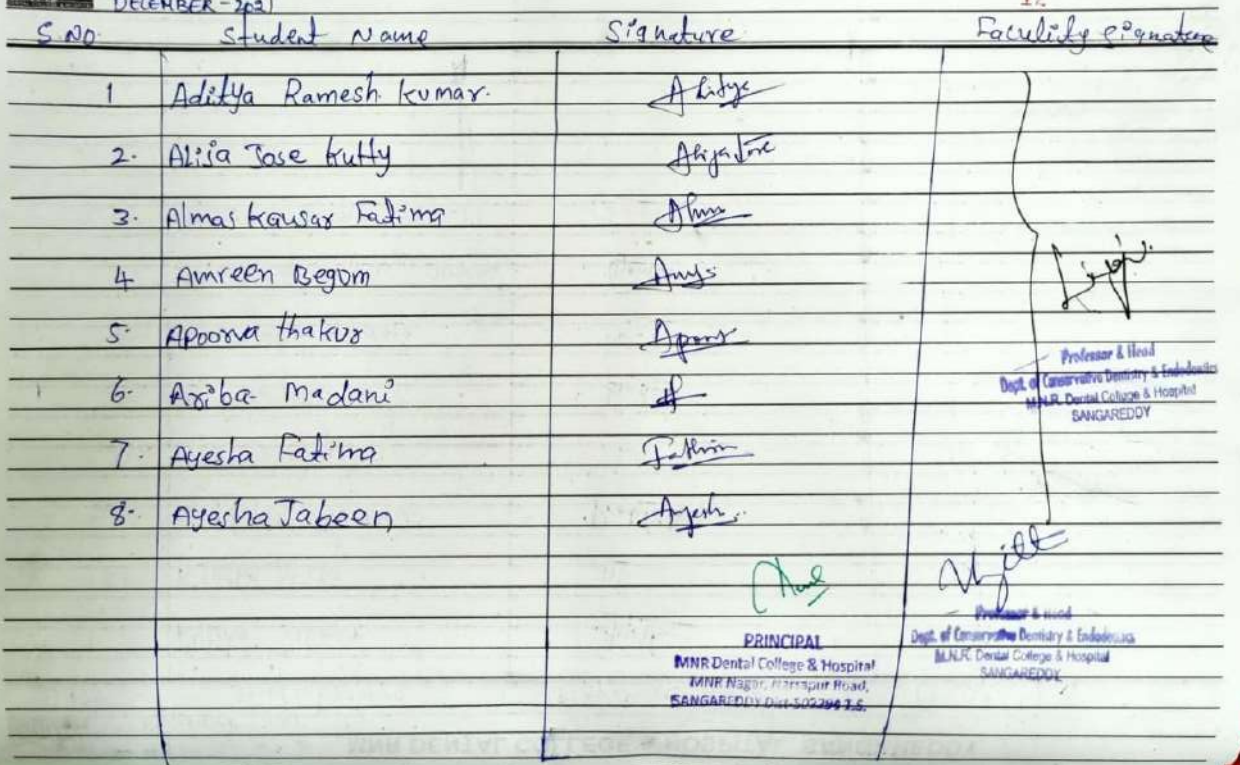 DECEMBER - 2021
S.NO. Student Name Signature Faculity Signature
1 Aditya Ramesh kumar.
2. Alija Jose kutty Alija Jose
3. Almas kausar Fatima
4 Amreen Begum
5. Apoorva thakur Apoor
6. Ariba Madani
7. Ayesha Fatima
8. Ayesha Jabeen Ayesh
Professor & Head
Dept. of Conservative Dentistry & Endodontics
M.N.R. Dental College & Hospital
SANGAREDDY
PRINCIPAL
MNR Dental College & Hospital
MNR Nagar, Narsapur Road,
SANGAREDDY Dist-502294 T.S.
Professor & Head
Dept. of Conservative Dentistry & Endodontics
M.N.R. Dental College & Hospital
SANGAREDDY